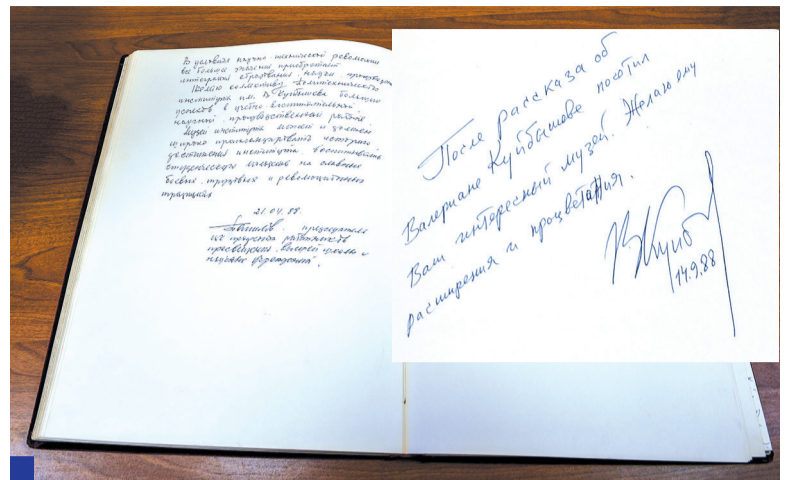 В условиях научно-технической революции
все больше значение приобретает
интеграция образования, науки, производства
Желаю коллективу политехнического
института им. В. Куйбышева больших
успехов в учебно-воспитательной
научной, производственной работе.
Музей института может и должен
широко пропагандировать историю
достижения института, воспитывать
студенческую молодежь на славных
боевых, трудовых и революционных
традициях
21.04.88.
председатель
ЦК профсоюза работников
просвещения, высшей школы и
научных учреждений.
После рассказа об
Валериане Куйбышове посетил
Ваш интересный музей. Желаю ему
расширения и процветания.
ВКуйб
14.9.88